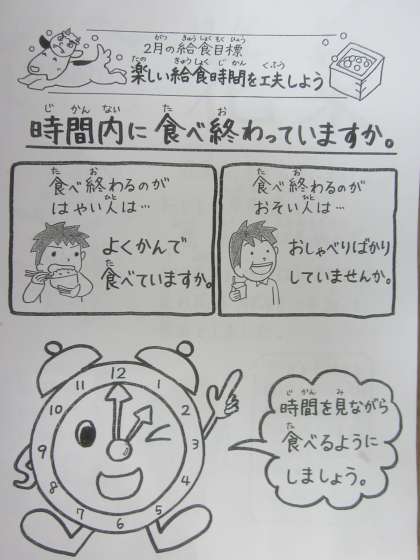 2月の給食目標
楽しい給食時間を工夫しよう
時間内に食べ終わっていますか。
食べ終わるのが
はやい人は…
よくかんで
食べていますか。
食べ終わるのが
おそい人は…
おしゃべりばかり
していませんか。
12
1
2
3
4
5
6
7
8
9
10
11
時間を見ながら
食べるように
しましょう。